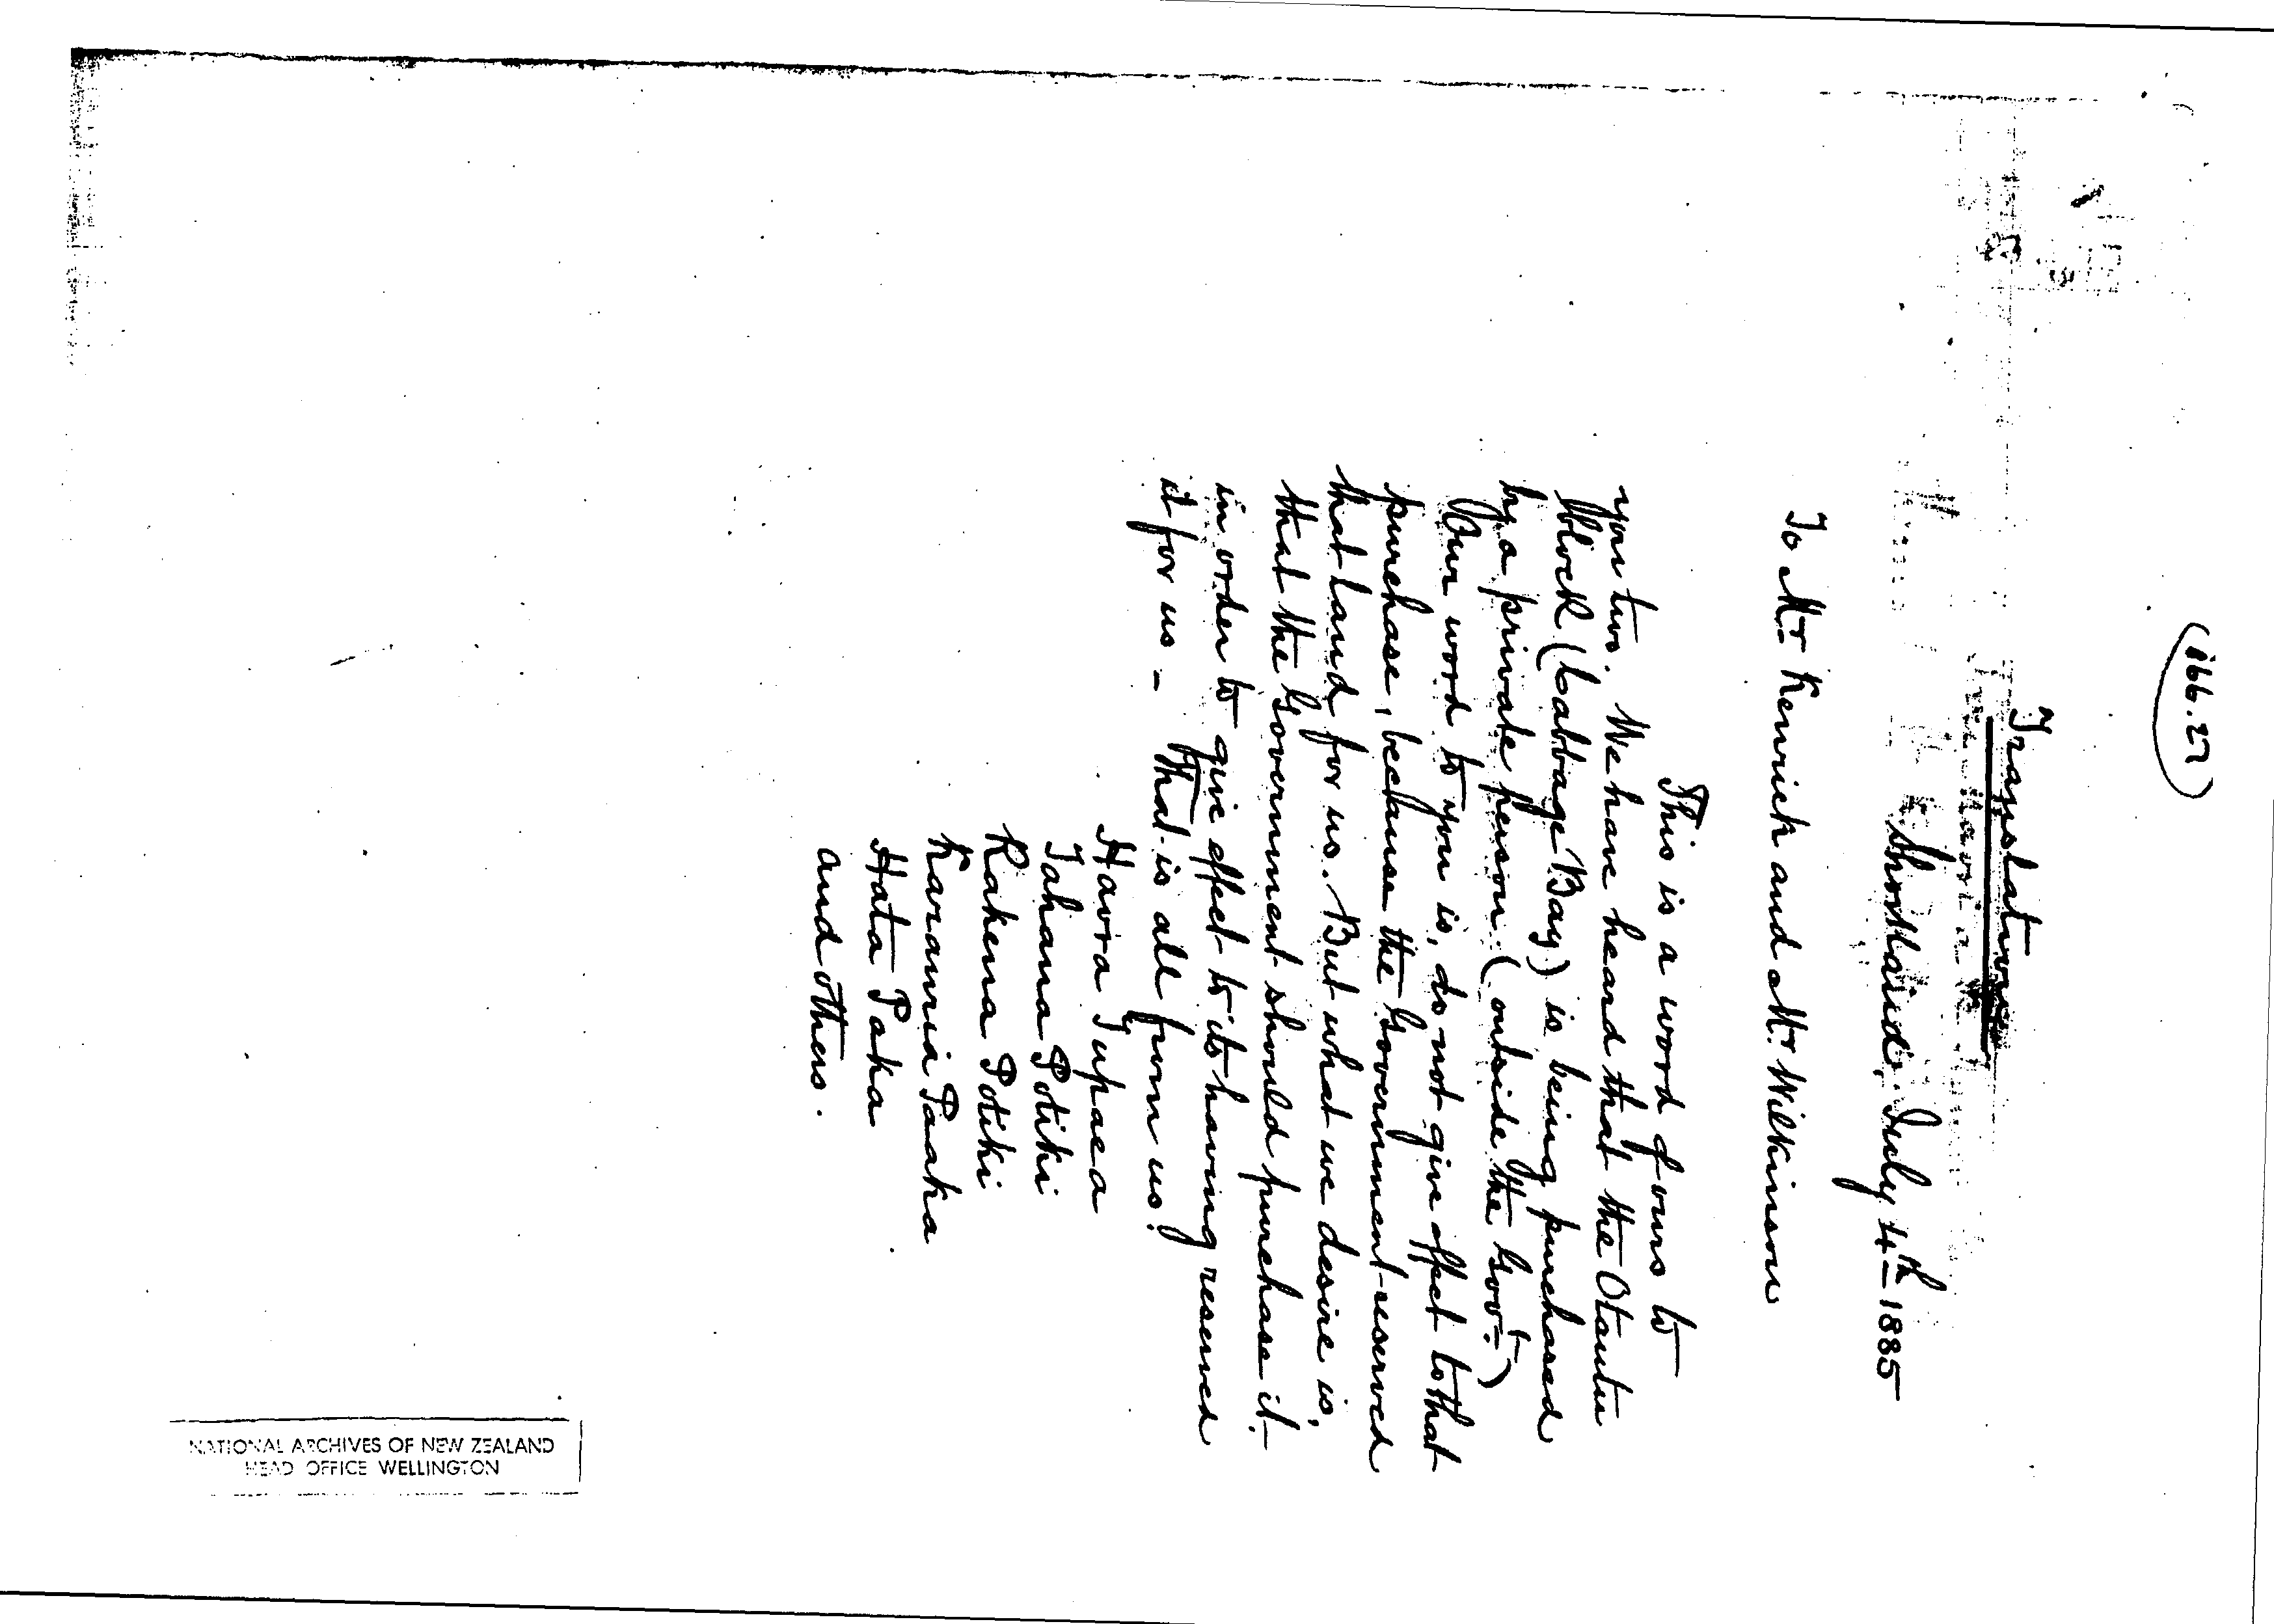 (166.27)
Translation
Shortland, July 4th 1885
To Mr Kenrick and Mr Wilkinson
This is a word of ours to
you two. We have heard that the Otautu
Block (Cabbage Bay) is being purchased
by a private person (outside the Govt.)
Our word to you is, do not give effect to that
purchase, because the Government reserved
that land for us. But what we desire is,
that the Government should purchase it.-
in order to give effect to its having reserved
it for us - That is all from us.
Haora Tupaea
Tahana Potiki
Rakena Potiki
Karauria Paaka
Hata Paka
and others.
NATIONAL ARCHIVES OF NEW ZEALAND
HEAD OFFICE WELLINGTON